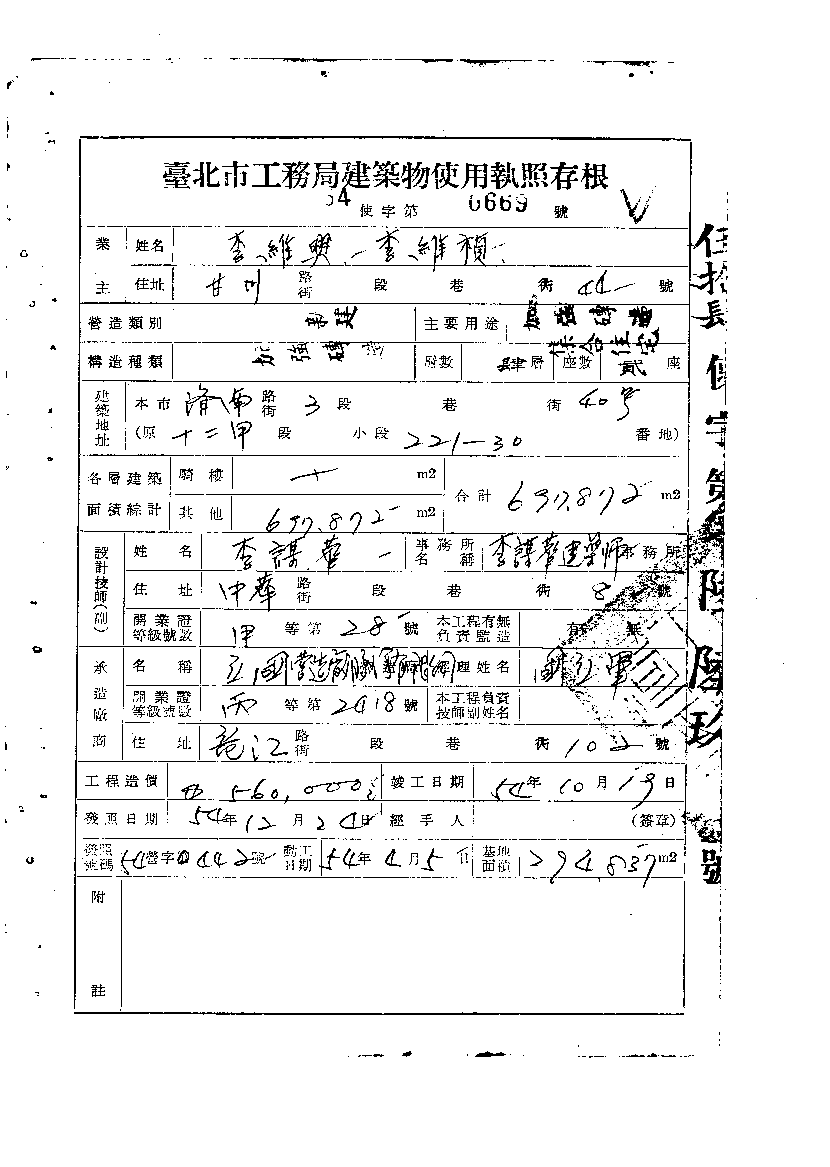 臺北市工務局建築物使用執照存根
54 使字第 0669 號
業主 姓名 李維興 李維禎
住址 甘州 路街 段 巷 街 44 號
營造類別 新建 主要用途 集合住宅
構造種類 加強磚造 層數 肆層 座數 貳座
建築地址 本市 濟南 路街 3段 巷 街 40号
(原 十二甲 段 小段 221-30 番地)
各層建築面積綜計 騎樓 m2 合計 637.872 m2
其他 637.872 m2
設計技師(副) 姓名 李謀華 事務所名稱 李謀華建築師事務所
住址 中華 路街 段 巷 街 8 號
開業證等級號數 甲 等第 28 號 本工程有無負責監造 有 無
承造廠商 名稱 經理姓名
開業證等級號數 丙 等第 2418 號 本工程負責技師副姓名
住址 龍江 路街 段 巷 街 102 號
工程造價 560,000 竣工日期 54年10月19日
發照日期 54年12月24日 經手人 (簽章)
發照號碼 54營字0442號 動工日期 54年4月5日 基地面積 294.837 m2
附註
伍拾肆 使字第 陸陸玖 號